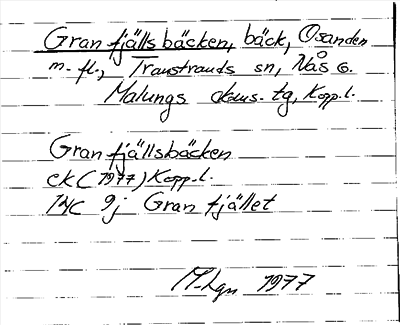 Granfjällsbäcken, bäck, Osanden
m. fl., Transtrands sn, Nås o.
Malungs doms. tg, Kopp. l.
Granfjällsbäcken
ek (1977) Kopp. l.
14C 9j Granfjället
M-Lgn 1977